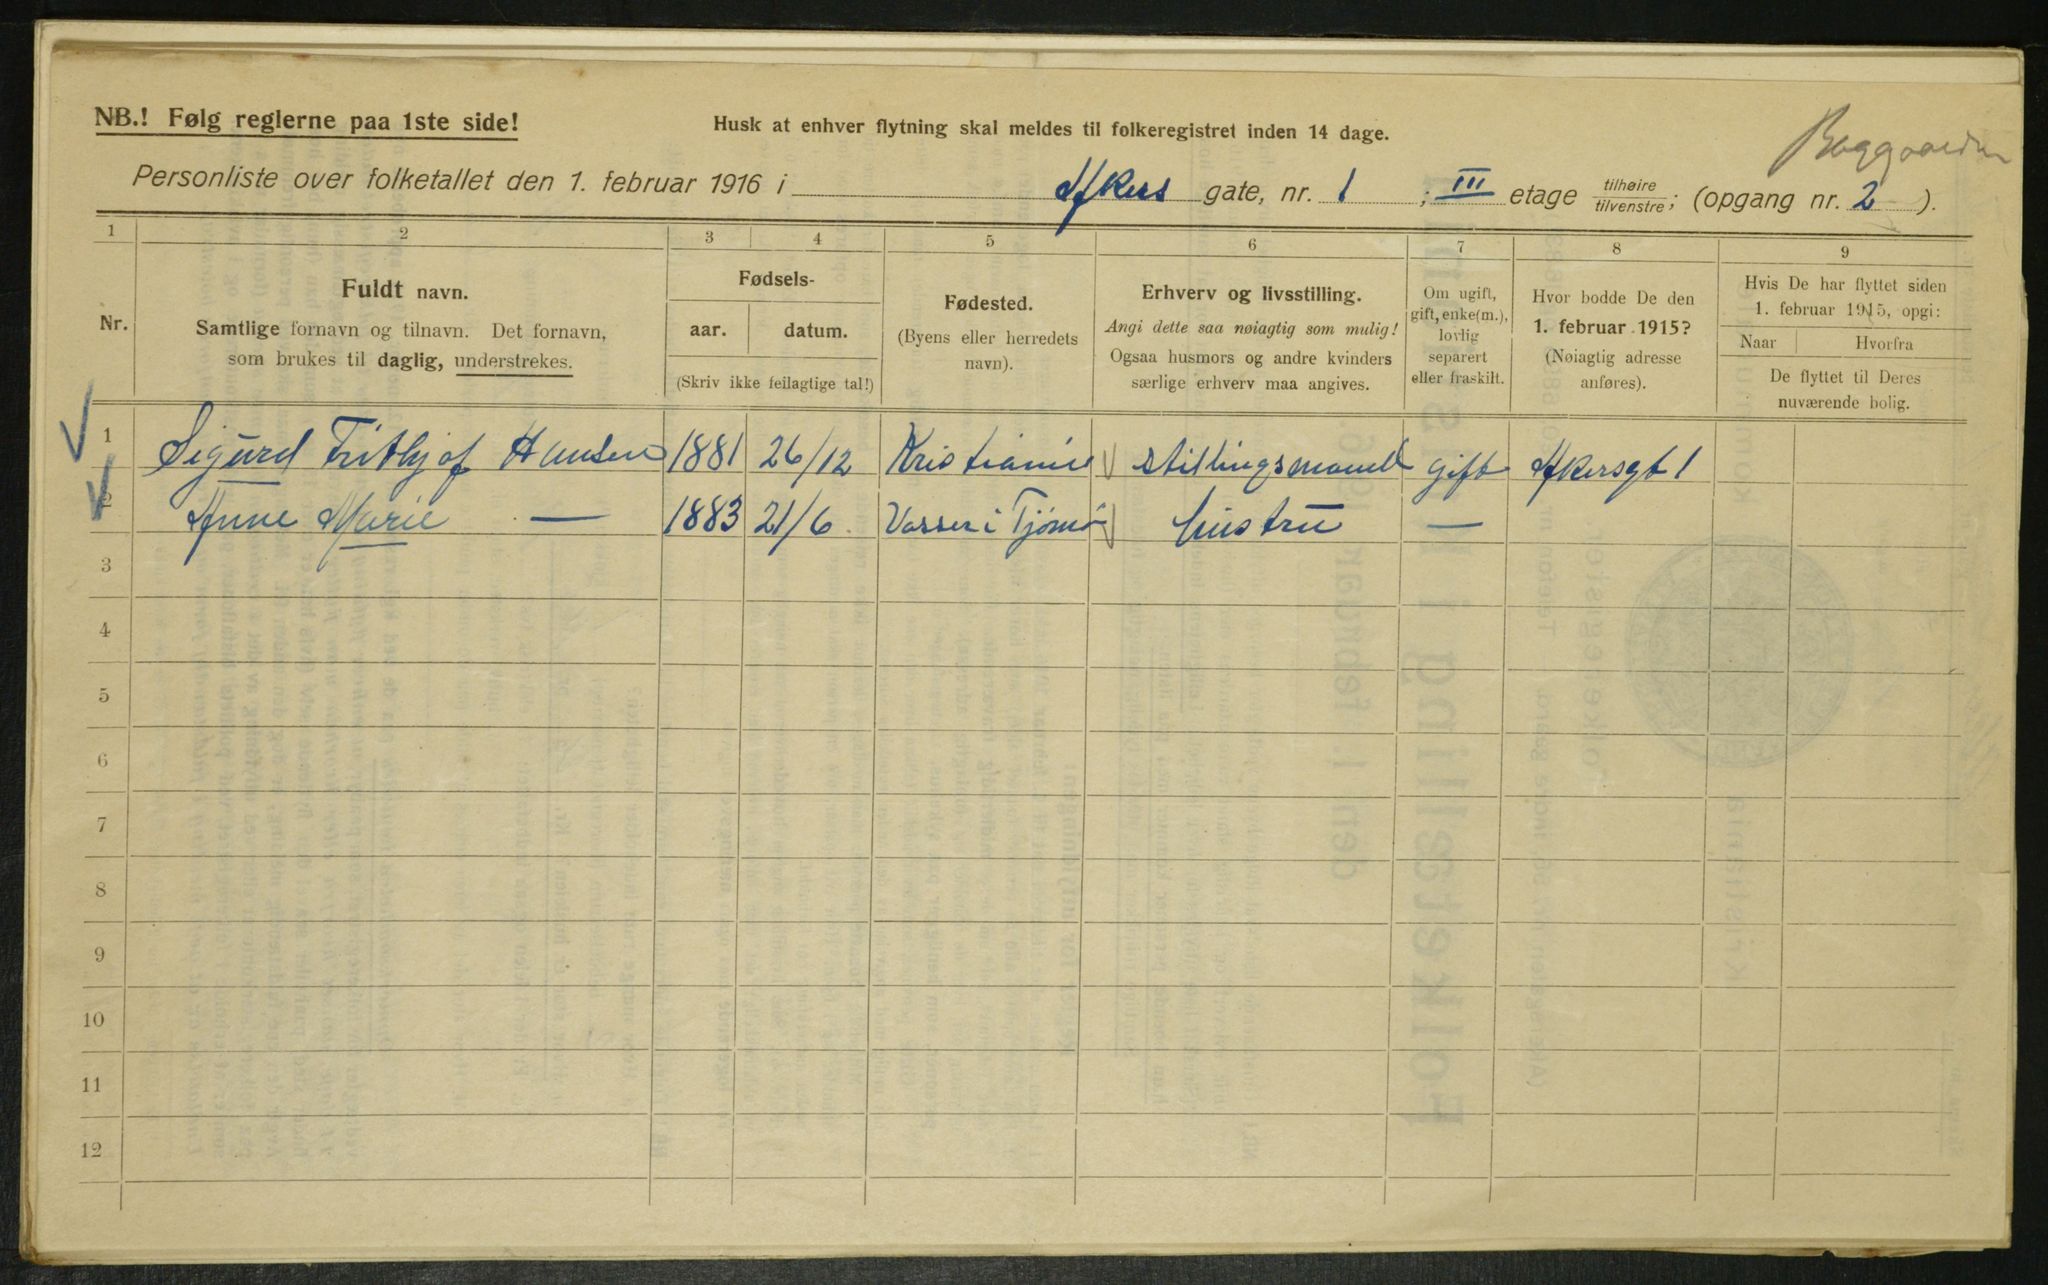 NB.! Følg reglerne paa 1ste side!
Husk at enhver flytning skal meldes til folkeregistret inden 14 dage.
Baggaarden
Personliste over folketallet den 1. februar 1916 i Akers gate, nr. 1 ; III etage tilhøire tilvenstre; (opgang nr. 2 ).
1 2 3 4 5 6 7 8 9
Nr.
Fuldt navn.
Samtlige fornavn og tilnavn. Det fornavn,
som brukes til daglig, understrekes.
Fødsels-
aar. datum.
(Skriv ikke feilagtige tal!)
Fødested.
(Byens eller herredets
navn).
Erhverv og livsstilling.
Angi dette saa nøiagtig som mulig!
Ogsaa husmors og andre kvinders
særlige erhverv maa angives.
Om ugift,
gift, enke(m.),
lovlig
separert
eller fraskilt.
Hvor bodde De den
1. februar 1915?
(Nøiagtig adresse
anføres).
Hvis De har flyttet siden
1. februar 1915, opgi:
Naar Hvorfra
De flyttet til Deres
nuværende bolig.
1 Sigurd Frithjof Hansen 1881 26/12 Kristiania stillingsmand gift Akersgt 1
2 Anne Marie — 1883 21/6 Vasser i Tjømø hustru —
3
4
5
6
7
8
9
10
11
12